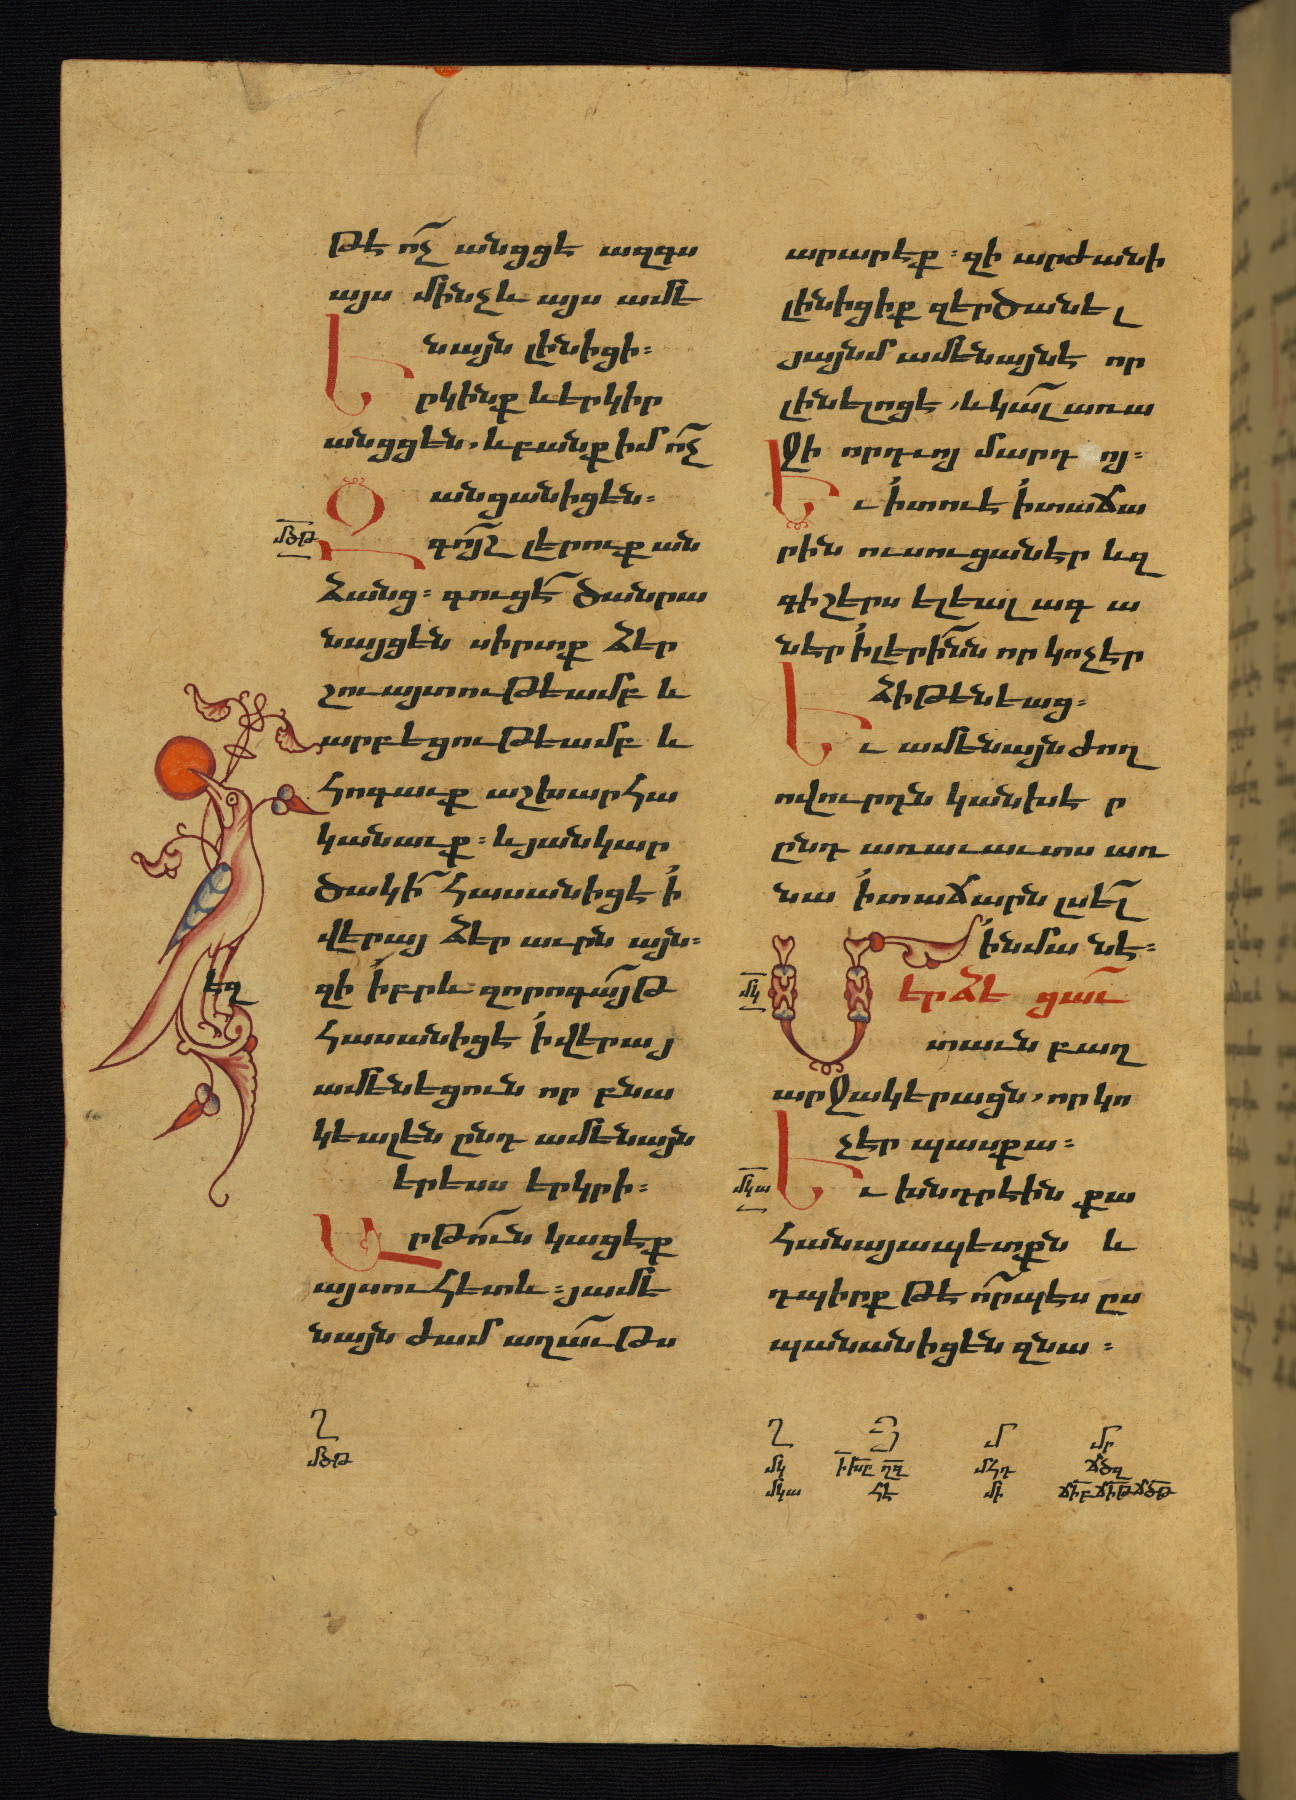 թէ ո՛չ անցցէ ազգս
այս մինչև այս ամե
նայն լինիցի։
Երկինք և երկիր
անցցեն, և բանք իմ ո՛չ
անցանիցեն։
մծթ
Զգո՛յշ լերուք ան
ձանց։ գուցէ ծանրա
նայցեն սիրտք ձեր
շուայտութեամբ և
արբեցութեամբ և
հոգաւք աշխարհա
կանաւք։ և յանկար
ծակի հասանիցէ ի
վերայ ձեր աւրն այն։
եզ
զի իբրև զորոգայթ
հասանիցէ ի վերայ
ամենեցուն որ բնա
կեալ են ընդ ամենայն
երեսս երկրի։
Արթուն կացէք
այսուհետև։ յամե
նայն ժամ աղաւթս
Ղ
մծթ
արարէք։ զի արժանի
լինիցիք զերծանել
յայնմ ամենայնէ որ
լինելոց է, և կալ առա
ջի որդւոյ մարդոյ։
Եւ ի տուէ ի տաճա
րին ուսուցանէր և զ
գիշերս ելեալ ագա
նէր ի լերինն որ կոչէր
ձիթենեաց։
Եւ ամենայն ժող
ովուրդն կանխէր
ընդ առաւաւտս առ
նա ի տաճարն լսել
ի նմանէ։
մկ
Մերձ է ցաւ
տաւն բաղ
արջակերացն, որ կո
չէր պասքա։
մկա
Եւ խնդրէին քա
հանայապետքն և
դպիրք թէ ո՛րպէս ըս
պանանիցեն զնա։
Ղ
մկ
մկա
մ
մհդ
մի
մր
ճծզ
ճիբ ճիթ ճծթ